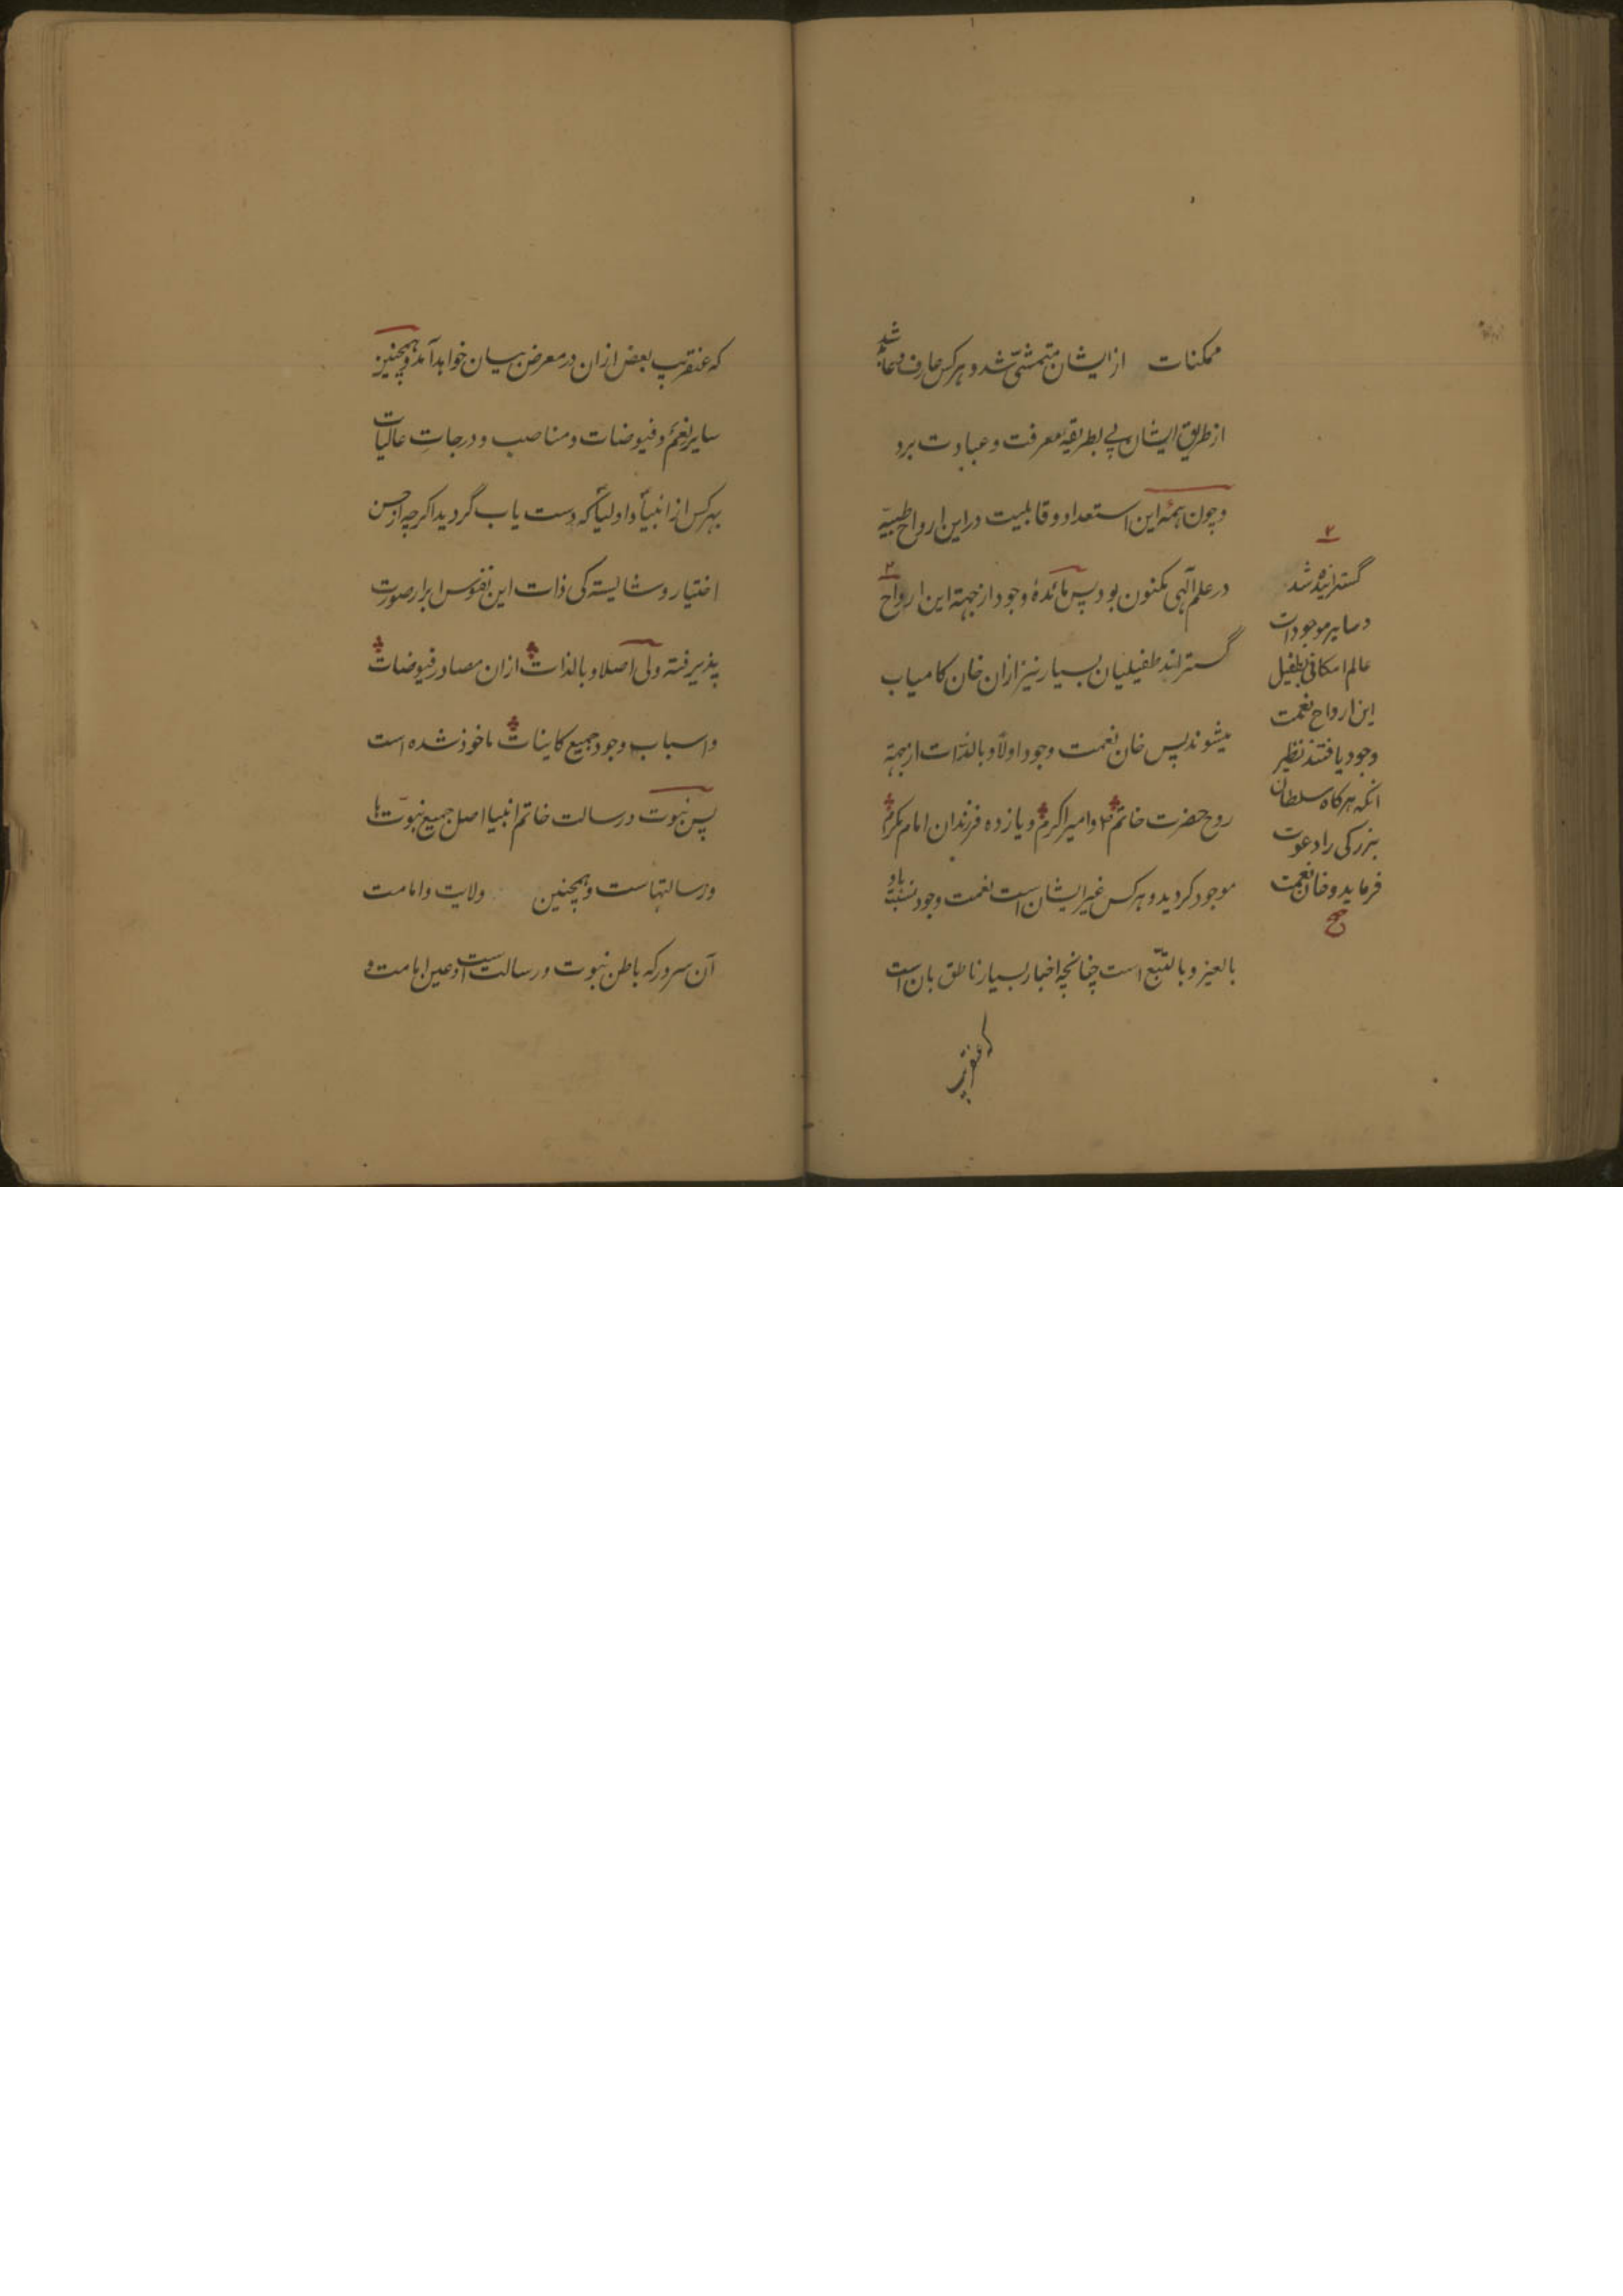 ممکنات از ایشان متمشّی شد و هرکس عارف و عابد شد
از طریق ایشان پی بطریقهٔ معرفت و عبادت برد
و چون همهٔ این استعداد و قابلیت در این ارواح طیبّه
در علم آلهی مکنون بود پس مائدهٔ وجود از جهته این ارواح ۲
گسترانند طفیلیان بسیار نیز ازان خان کامیاب
میشوند پس خان نعمت وجود اولاً و بالذّات از جهته
روح حضرت خاتم ص و امیر اکرم و یازده فرزندان امام مکرم
موجود کردید و هرکس غیر ایشان است نعمت وجود نسبت باو
بالعیز و بالتبّع است چنانچه اخبار بسیار ناطق بان است
که عنقریب
۲
گسترانیده شد
و سایر موجودات
عالم امکانی بطفیل
این ارواح نعمت
وجود یافتند نظیر
انکه هرکاه سلطان
بزرکی را دعوت
فرماید و خان نعمت
صح
که عنقریب بعض ازان در معرض بیان خواهد آمد و همچنین
سایر نعم و فیوضات و مناصب و درجاتِ عالیات
بهرکس از انبیأ و اولیأ که دست یاب گردید اکرچه از حسن
اختیار و شایسته کی ذات این نفوس ابرار صورت
پذیرفته ولی اصلا و بالذات ازان مصادر فیوضات
و اسباب وجود جمیع کاینات ماخوذ شده است
پس نبوت و رسالت خاتم انبیا اصل جمیع نبوّت ها
و رسالتهاست و همچنین ولایت و امامت
آن سرور که باطن نبوت و رسالت است و عین امامت و